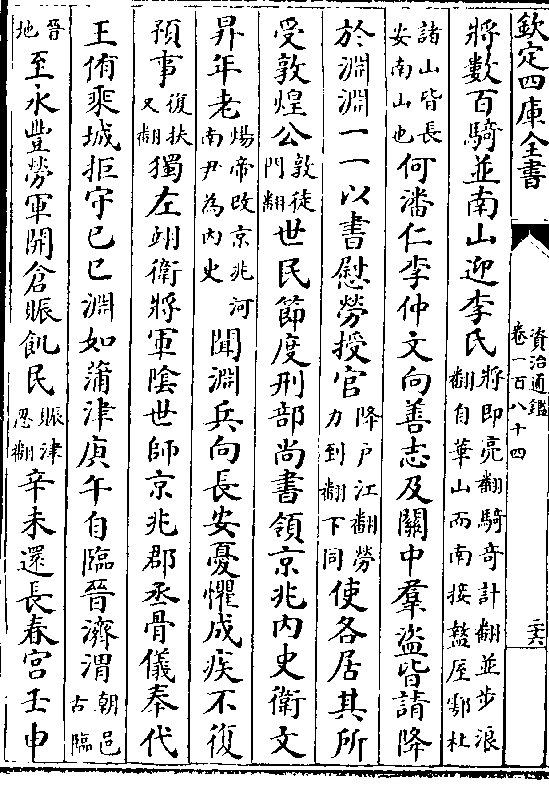 欽定四庫全書
資治通鑑
卷一百八十四
將數百騎並南山迎李氏將即亮翻騎奇計翻並步浪翻自華山而南接盩厔鄠杜
諸山皆長安南山也何潘仁李仲文向善志及關中羣盜皆請降
於淵淵一一以書慰勞授官降戶江翻勞力到翻下同使各居其所
受敦煌公敦徒門翻世民節度刑部尚書領京兆内史衛文
昇年老煬帝改京兆河南尹為内史聞淵兵向長安憂懼成疾不復
預事復扶又翻獨左翊衛將軍陰世師京兆郡丞骨儀奉代
王侑乘城拒守己巳淵如蒲津庚午自臨晉濟渭朝邑古臨
晉地至永豐勞軍開倉賑飢民賑津忍翻辛未還長春宮壬申